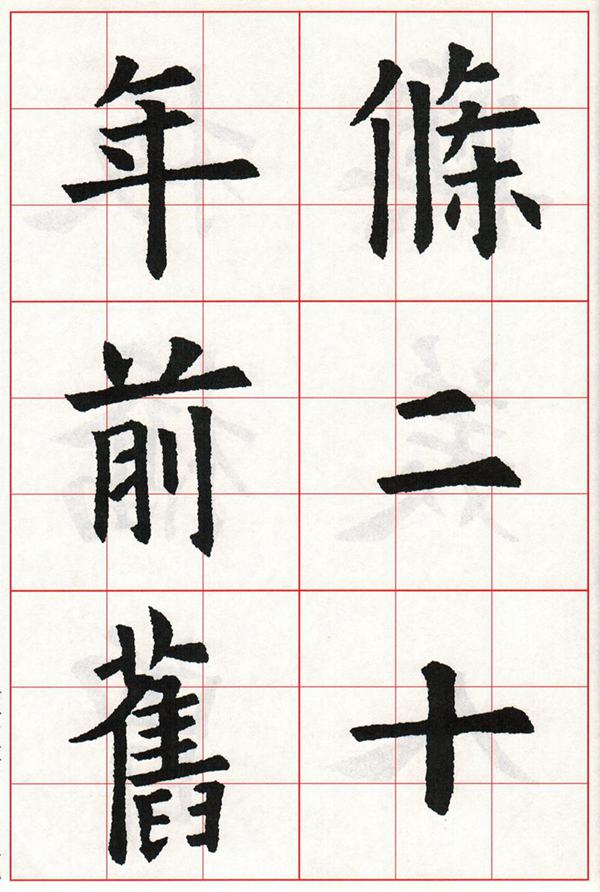 條二十
年前舊